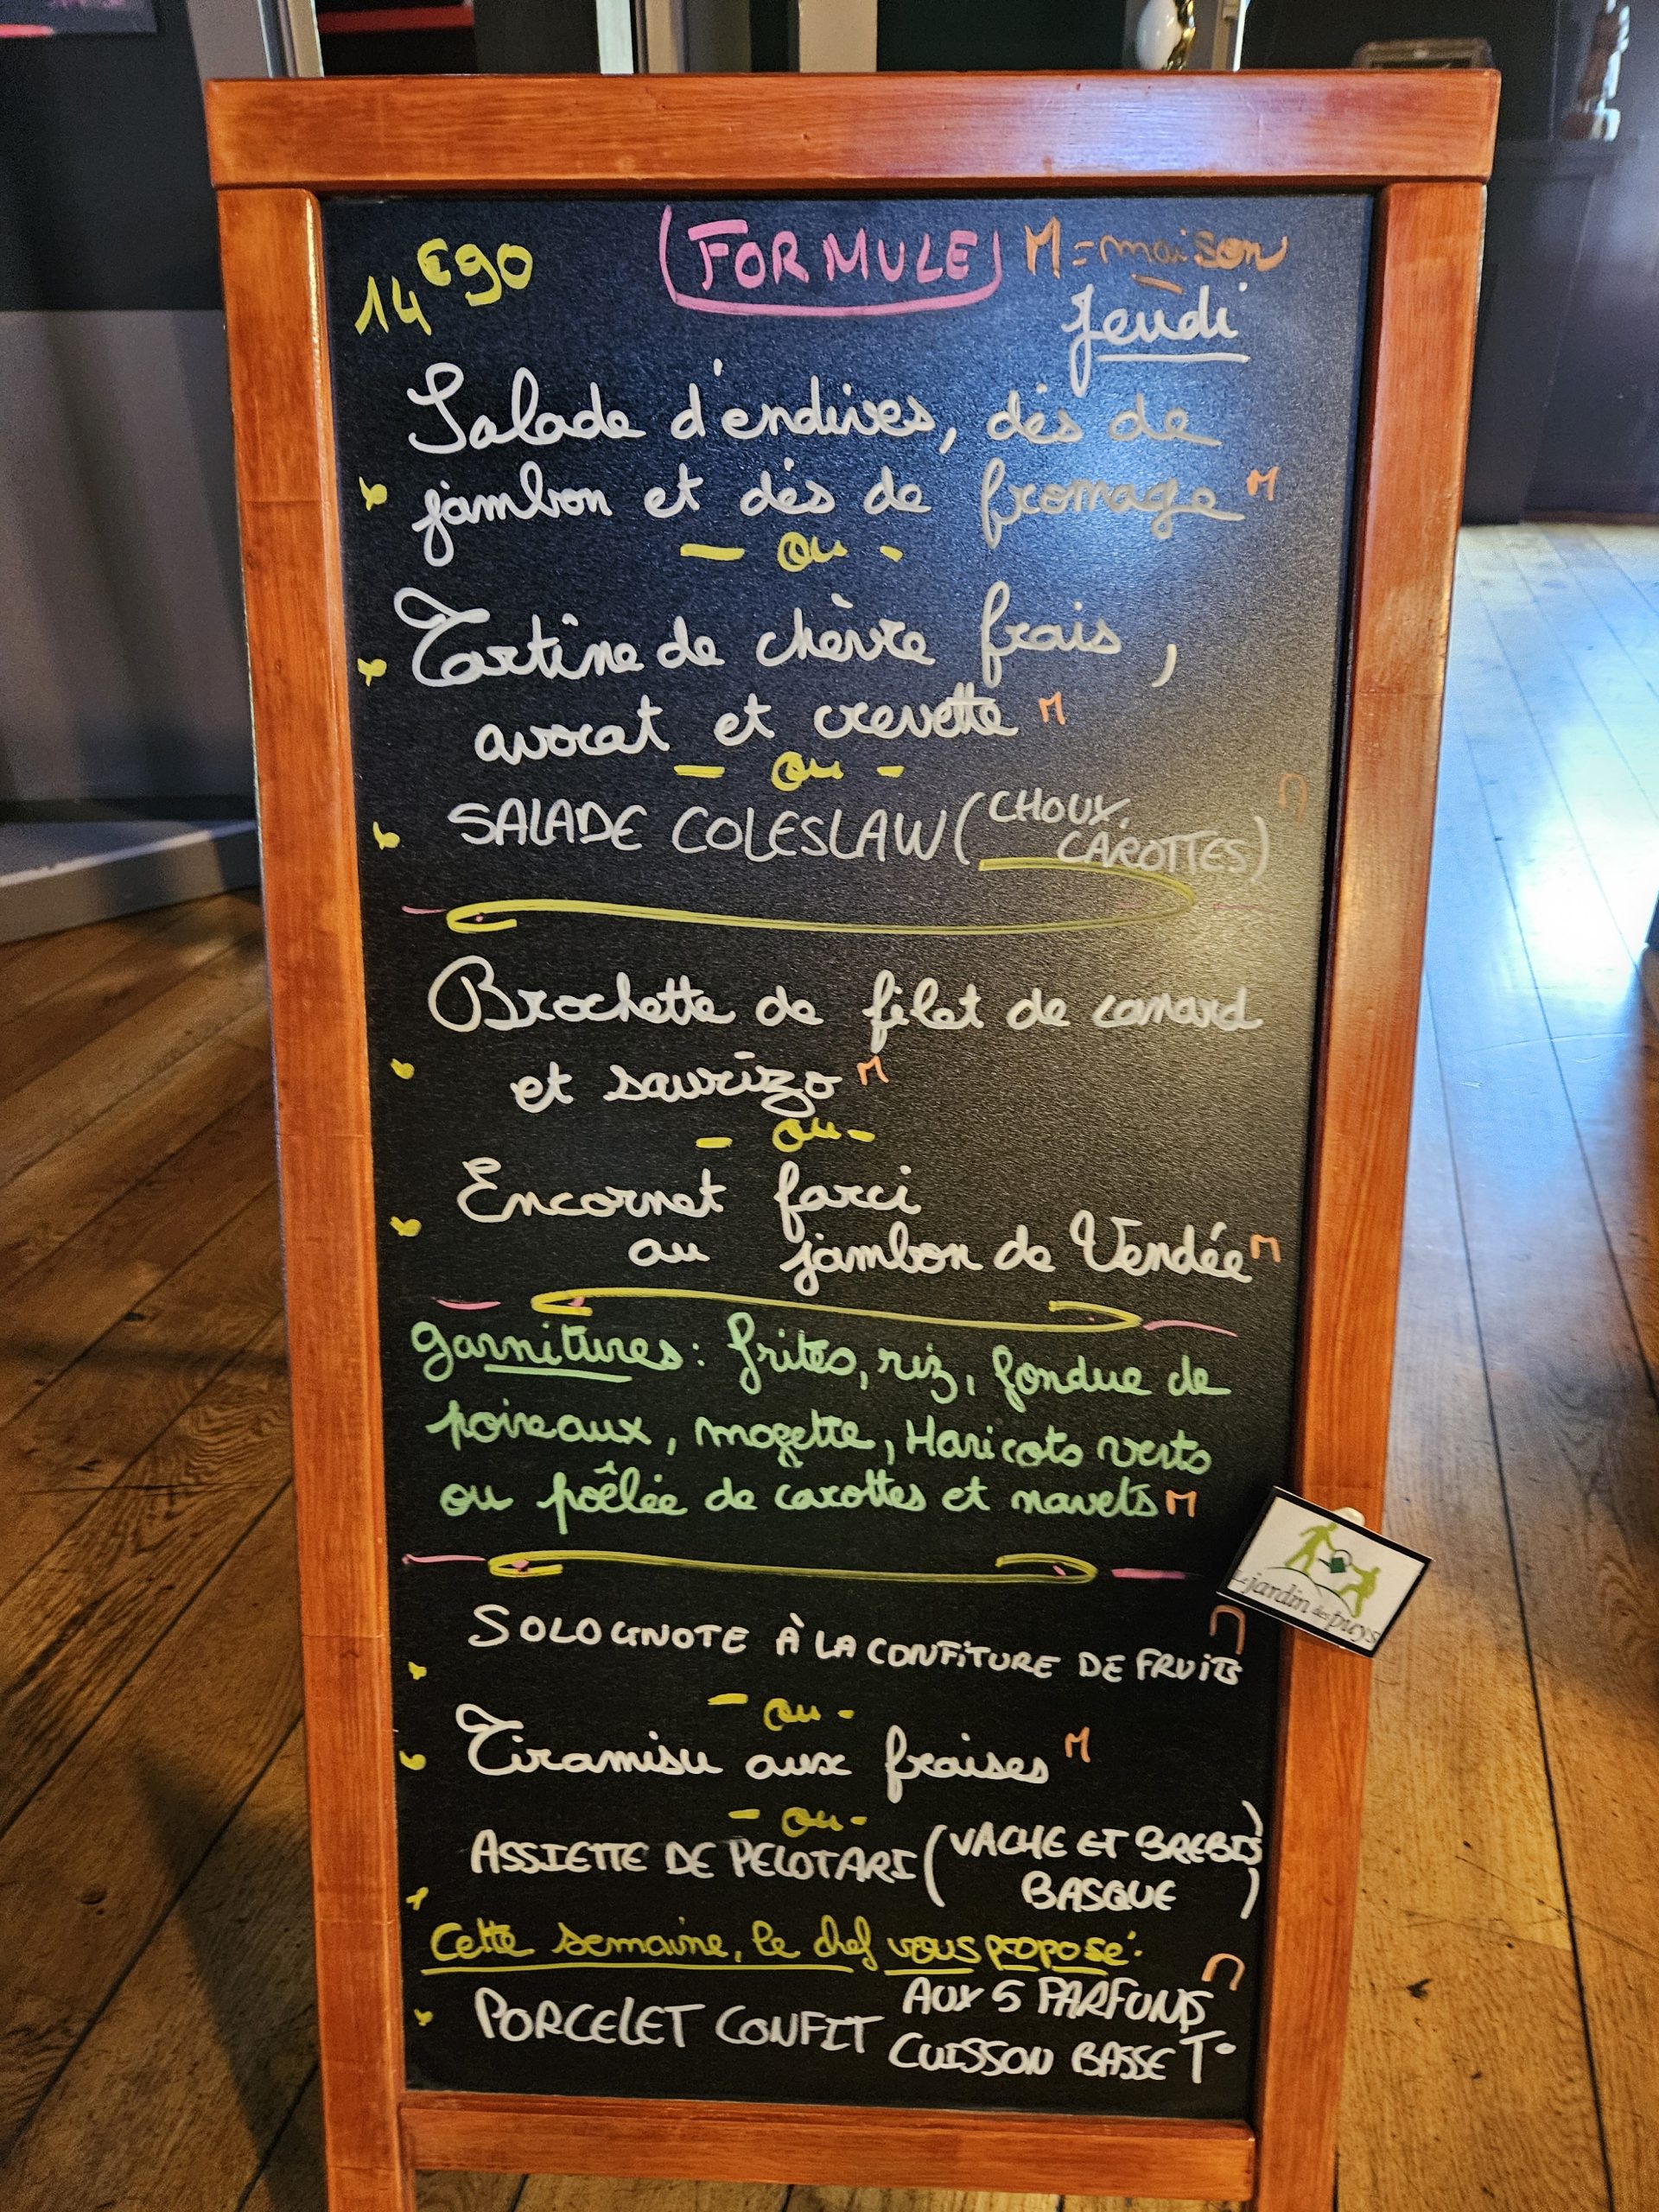 14€90 FORMULE M=maison
Jeudi
Salade d'endives, dés de
jambon et dés de fromage M
- ou -
Tartine de chèvre frais,
avocat et crevette M
- ou -
SALADE COLESLAW (CHOUX, CAROTTES) M
Brochette de filet de canard
et saurizo M
- ou -
Encornet farci
au jambon de Vendée M
garnitures: frites, riz, fondue de
poireaux, mogette, Haricots verts
ou poêlée de carottes et navets M
Le jardin des puys
SOLOGNOTE À LA CONFITURE DE FRUITS M
- ou -
Tiramisu aux fraises M
- ou -
ASSIETTE DE PELOTARI (VACHE ET BREBIS
BASQUE)
Cette semaine, le chef vous propose:
PORCELET CONFIT AUX 5 PARFUMS M
CUISSON BASSE T°